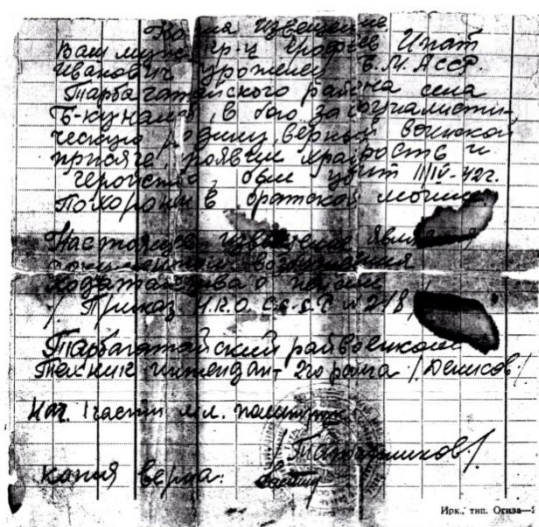 Копия Извещение
Ваш муж кр-ц Ерофеев Ипат
Иванович уроженец Б.М.АССР.
Тарбагатайского района села
Б-Куналей, в бою за социалисти-
ческую родину, верный воинской
присяге, проявив храбрость и
геройство, был убит II/IV-42г.
Похоронен в братской могиле
Настоящее извещение является
документом возбуждения
ходатайства о пенсии
/ Приказ Н.К.О. С.С.С.Р №218/
Тарбагатайский райвоенком
Техник интендант 2го ранга /Денисов/
Нач. I части мл. политрук
Копия верна:
Ирк. тип. Огиза